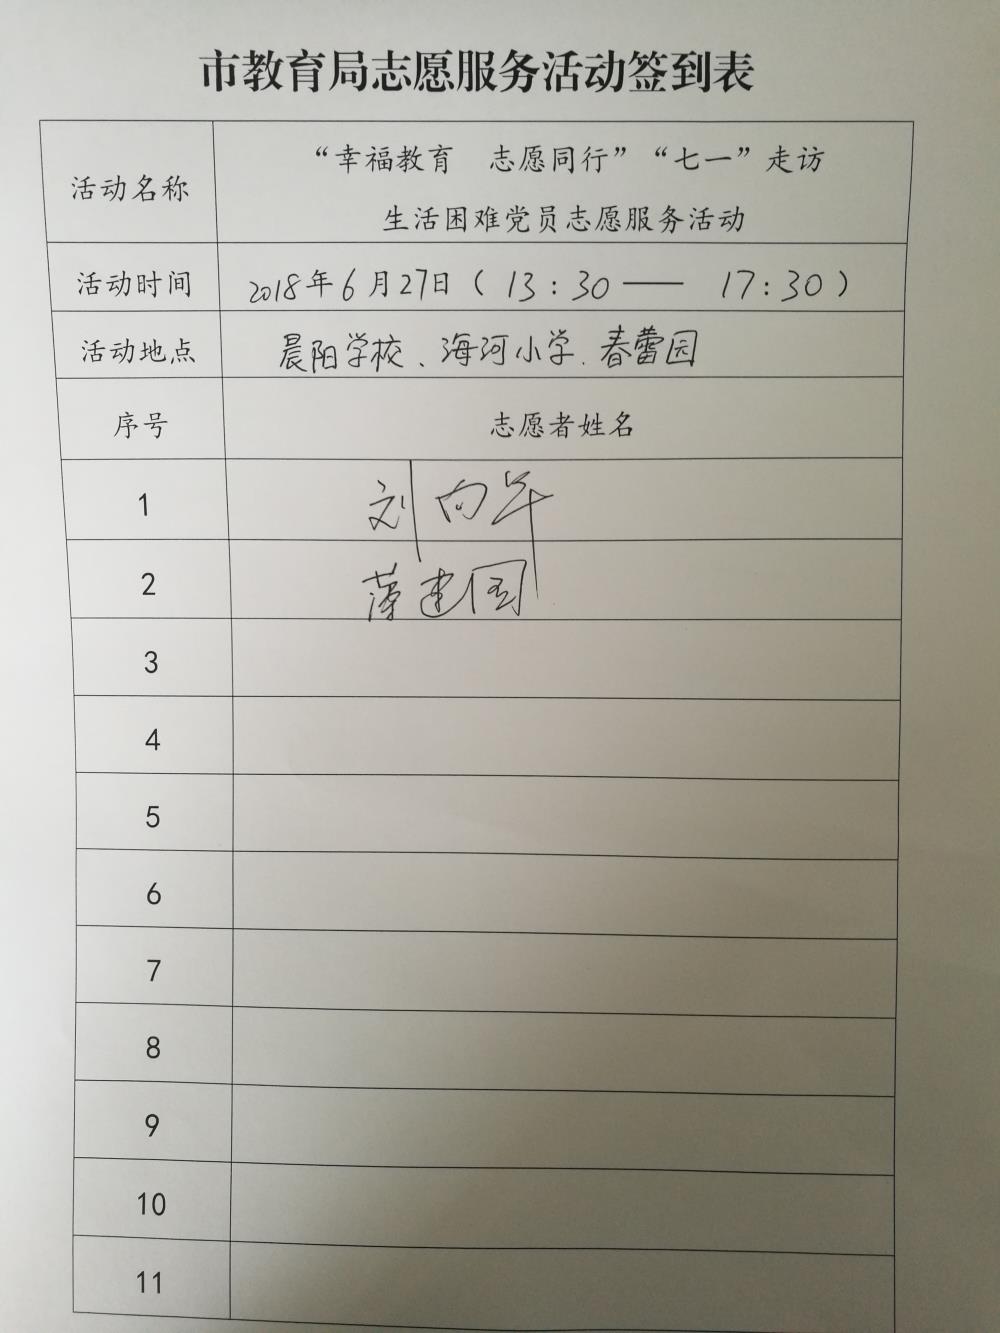 市教育局志愿服务活动签到表
活动名称
“幸福教育 志愿同行”“七一”走访
生活困难党员志愿服务活动
活动时间
2018年6月27日(13:30—— 17:30)
活动地点
晨阳学校、海河小学、春蕾园
序号
志愿者姓名
1
刘向午
2
建国
3
4
5
6
7
8
9
10
11